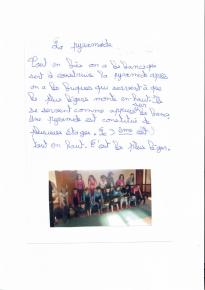 La pyramide
Tout en bas on a les bancs qui
sert à construire la pyramide après
on a les briques qui servent à que
les plus légers monte en haut. Ils
se servent comme appuie sur le banc,
Une pyramide est constitué de
plusieurs étages. Le 3 ème est
tout en haut. C'est les plus légers.